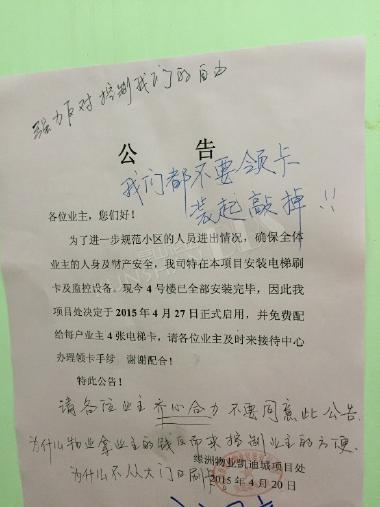 强力反对控制我们的自由
公 告
我们都不要领卡
装起敲掉!!
各位业主，您们好！
为了进一步规范小区的人员进出情况，确保全体
业主的人身及财产安全，我司特在本项目安装电梯刷
卡及监控设备。现今4号楼已全部安装完毕，因此我
项目处决定于2015年4月27日正式启用，并免费配
给每户业主4张电梯卡，请各位业主及时来接待中心
办理领卡手续。谢谢配合！
特此公告！
请各位业主齐心合力不要同意此公告.
为什么物业拿业主的钱反而来控制业主的方便
绿洲物业凯迪城项目处
为什么不从大门口刷卡
2015年4月20日